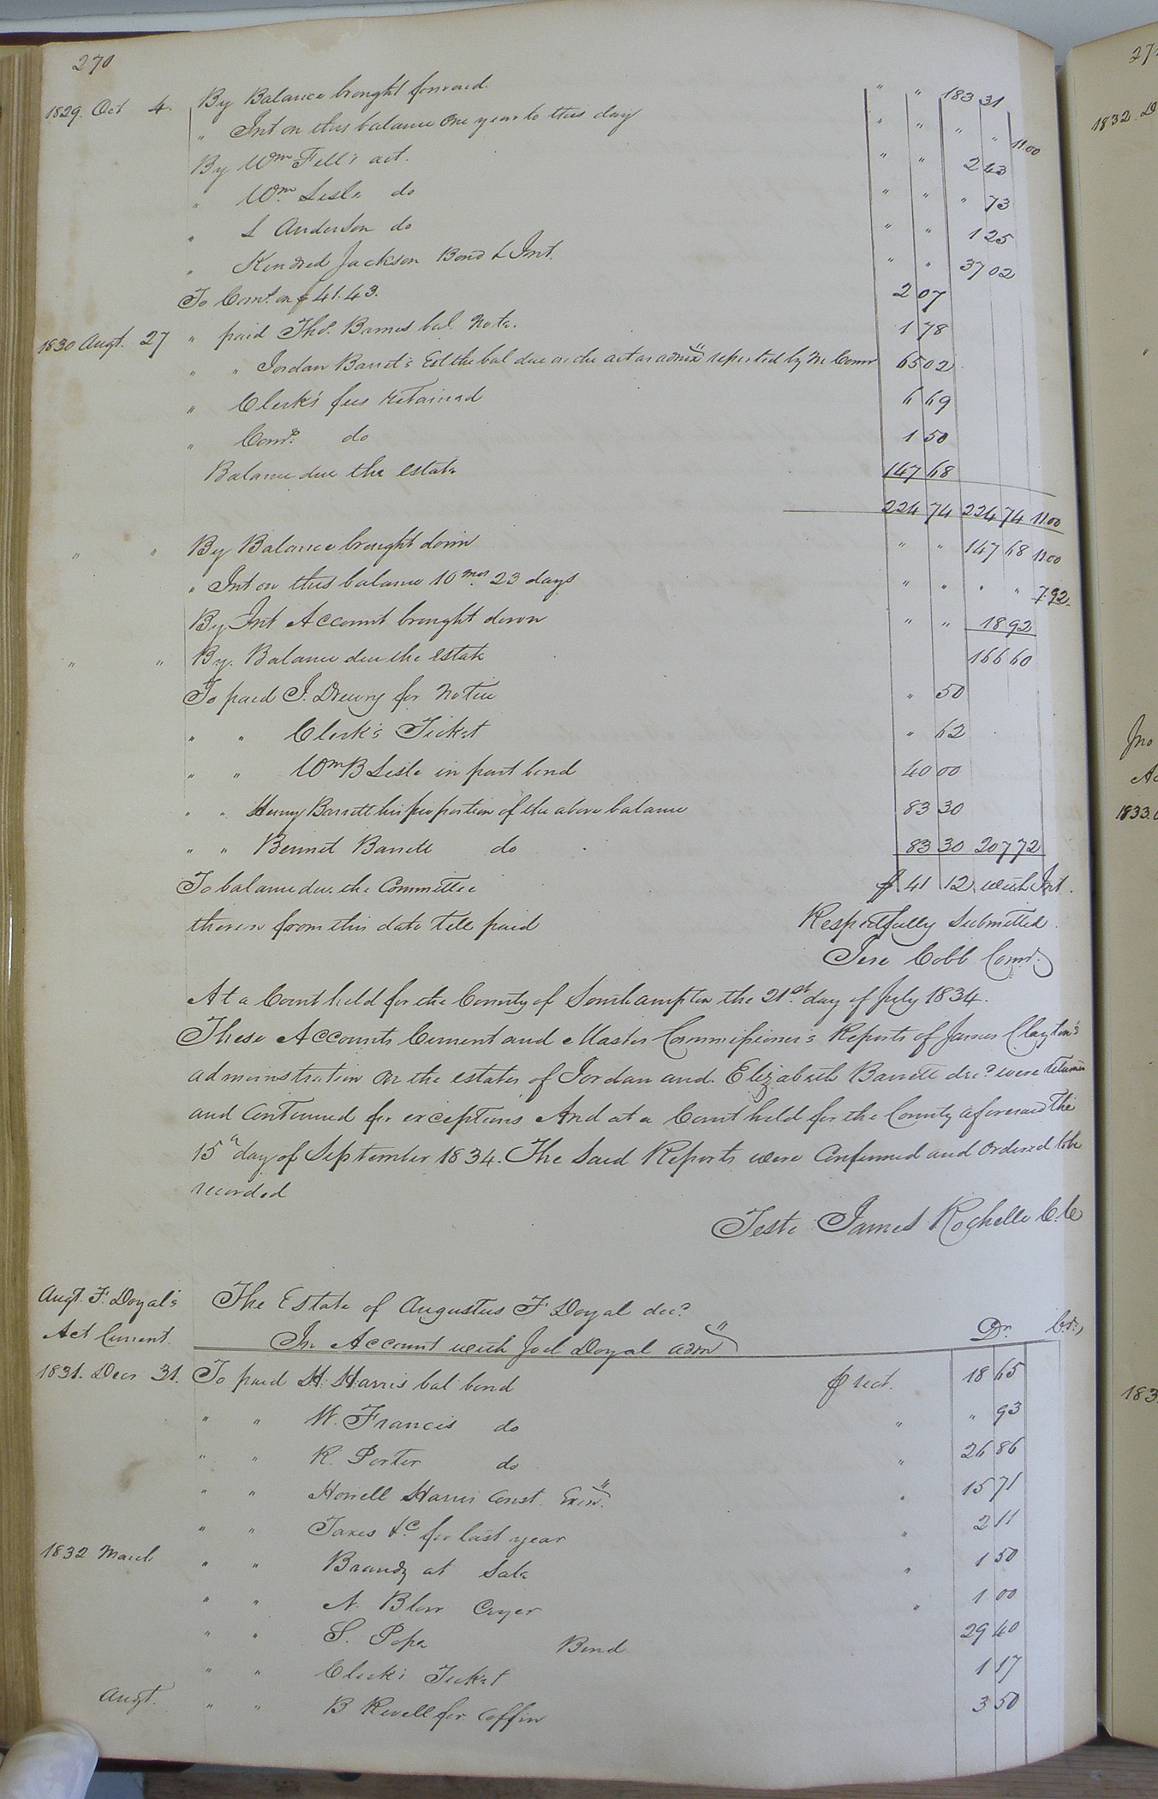 270
1829. Oct 4. By Balance brought forward " " 183 31
" Int on this balance One year to this day " " " " 11.00
By Wm Fell's act. " " 2 43
" Wm Lisle do " " " 73
" L Anderson do " " 1 25
" Kindred Jackson Bond & Int. " " 37 02
To Coms. on $41.43. 2 07
1830 Augt. 27 " paid Thos. Barnes bal. Note. 1 78
" " Jordan Barret's Est the bal due on the act as admr reported by the Comr 65 02
" Clerk's fees retained 6 69
" Comrs do 1 50
Balance due the estate 147 68
224 74 224 74 11.00
" " By Balance brought down " " 147 68 11.00
" Int on this balance 10 mos 23 days " " " " 7.92.
By Int Account brought down " " 18 92
" " By. Balance due the estate 166 60
To paid J. Drewry for Notice " 50
" " Clerk's Ticket " 62
" " Wm B Lisle in part bond 40 00
" " Henry Barrett his proportion of the above balance 83 30
" " Bennet Barrett do 83 30 207 72
To balance due the Committee $ 41 12 with Int.
thereon from this date till paid Respectfully Submitted.
Jere Cobb Comr.
At a Court held for the County of Southampton the 21st. day of July 1834.
These Accounts Current and Master Commissioner's Reports of James Clayton's
administration on the estates of Jordan and Elizabeth Barrett decd were returned
and Continued for exceptions And at a Court held for the County aforesaid the
15th day of September 1834. The Said Reports were Confirmed and Ordered to be
recorded
Teste James Rochelle C.C
Augt. F. Doyal's The Estate of Augustus F Doyal decd
Act Current. In Account with Joel Doyal admr Dr. Cr.
1831. Decr 31. To paid H. Harris bal bond $ rect. 18 65
" " W. Francis do " " 93
" " R. Porter do " 26 86
" " Howell Harris Const. Exon. " 15 71
" " Taxes &c for last year " 2 11
1832 March " " Brandy at Sale " 1 50
" " N. Blow Cryer " 1 00
" " S. Pope Bond 29 40
" " Clerk's Ticket 1 17
Augt. " " B Revell for Coffin 3 50
1832. D
Jno
1833.
183